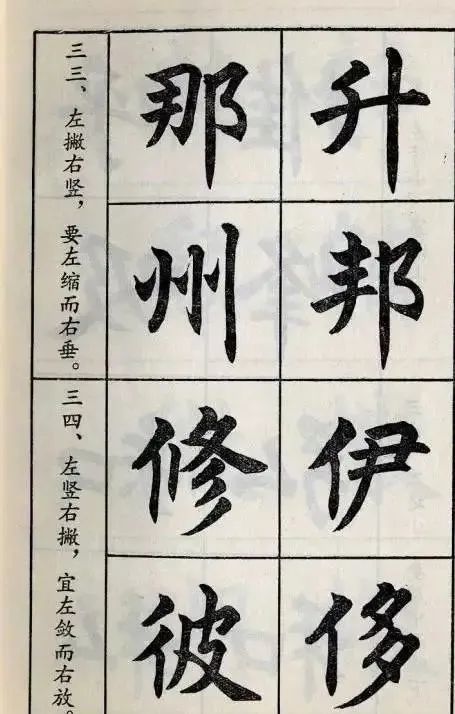 三三、左撇右竖，要左缩而右垂。
那升
州邦
三四、左竖右撇，宜左敛而右放。
修伊
彼侈